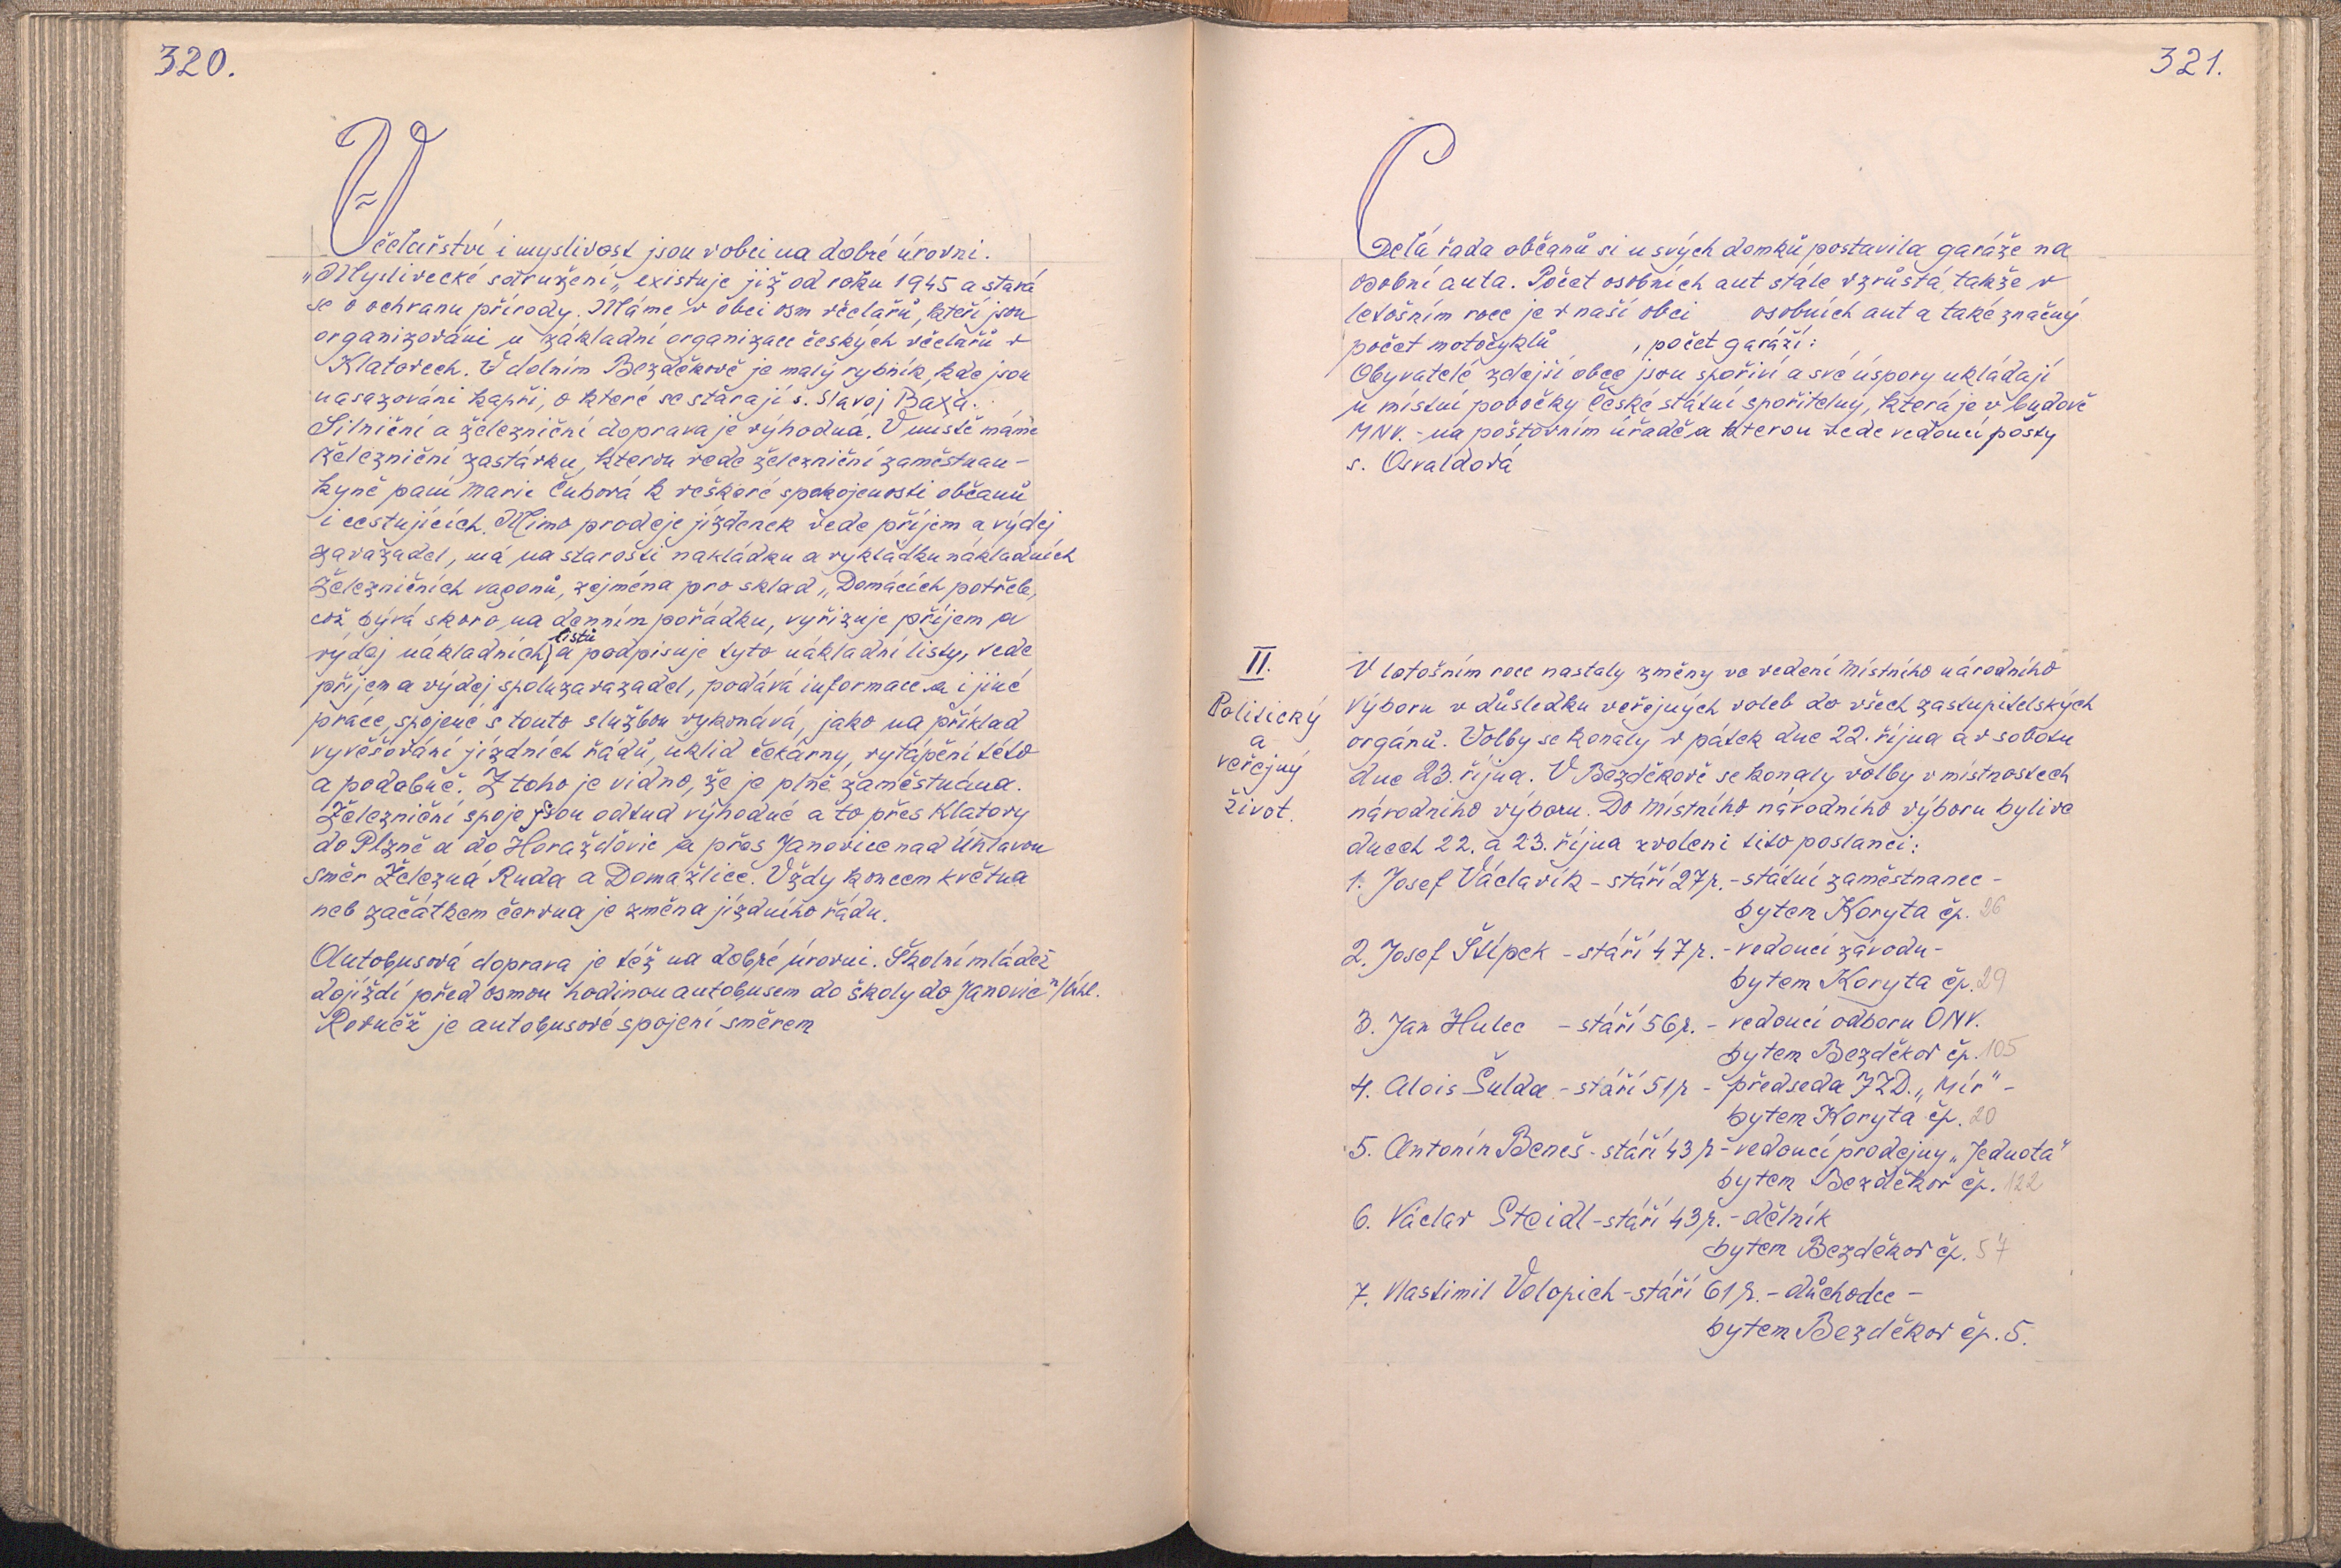 320.
Včelařství i myslivost jsou v obci na dobré úrovni.
"Myslivecké sdružení" existuje již od roku 1945 a stará
se o ochranu přírody. Máme v obci osm včelařů, kteří jsou
organizováni u základní organizace českých včelařů v
Klatovech. V dolním Bezděkově je malý rybník, kde jsou
nasazováni kapři, o které se starají s. Slavoj Baxa.
Silniční a železniční doprava je výhodná. V místě máme
železniční zastávku, kterou vede železniční zaměstnan-
kyně paní Marie Čubová k veškeré spokojenosti občanů
i cestujících. Mimo prodeje jízdenek vede příjem a výdej
zavazadel, má na starosti nakládku a vykládku nákladních
železničních vagonů, zejména pro sklad "Domácích potřeb,
což bývá skoro na denním pořádku, vyřizuje příjem a
výdej nákladních listů a podpisuje tyto nákladní listy, vede
příjem a výdej spoluzavazadel, podává informace a i jiné
práce, spojené s touto službou vykonává, jako na příklad
vyvěšování jízdních řádů, uklid čekárny, vytápění této
a podobně. Z toho je vidno, že je plně zaměstnána.
Železniční spoje jsou odtud výhodné a to přes Klatovy
do Plzně a do Horažďovic a přes Janovice nad Úhlavou
směr Železná Ruda a Domažlice. Vždy koncem května
neb začátkem června je změna jízdního řádu.
Autobusová doprava je též na dobré úrovni. Školní mládež
dojíždí před osmou hodinou autobusem do školy do Janovic n/Úhl.
Rovněž je autobusové spojení směrem
321.
Celá řada občanů si u svých domků postavila garáže na
osobní auta. Počet osobních aut stále vzrůstá, takže v
letošním roce je v naší obci osobních aut a také značný
počet motocyklů , počet garáží:
Obyvatelé zdejší obce jsou spořiví a své úspory ukládají
u místní pobočky České státní spořitelny, která je v budově
MNV. - na poštovním úřadě a kterou vede vedoucí pošty
s. Osvaldová
II.
Politický
a
veřejný
život.
V letošním roce nastaly změny ve vedení Místního národního
výboru v důsledku veřejných voleb do všech zastupitelských
orgánů. Volby se konaly v pátek dne 22. října a v sobotu
dne 23. října. V Bezděkově se konaly volby v místnostech
národního výboru. Do Místního národního výboru byli ve
dnech 22. a 23. října zvoleni tito poslanci:
1. Josef Václavík - stáří 27 r. - státní zaměstnanec -
bytem Koryta čp. 26
2. Josef Štípek - stáří 47 r. - vedoucí závodu -
bytem Koryta čp. 29
3. Jan Hulec - stáří 56 r. - vedoucí odboru ONV.
bytem Bezděkov čp. 105
4. Alois Šulda - stáří 51 r - předseda JZD. "Mír" -
bytem Koryta čp. 20
5. Antonín Beneš - stáří 43 r - vedoucí prodejny "Jednota"
bytem Bezděkov čp. 122
6. Václav Steidl - stáří 43 r. - dělník
bytem Bezděkov čp. 57
7. Vlastimil Volopich - stáří 61 r. - důchodce -
bytem Bezděkov čp. 5.